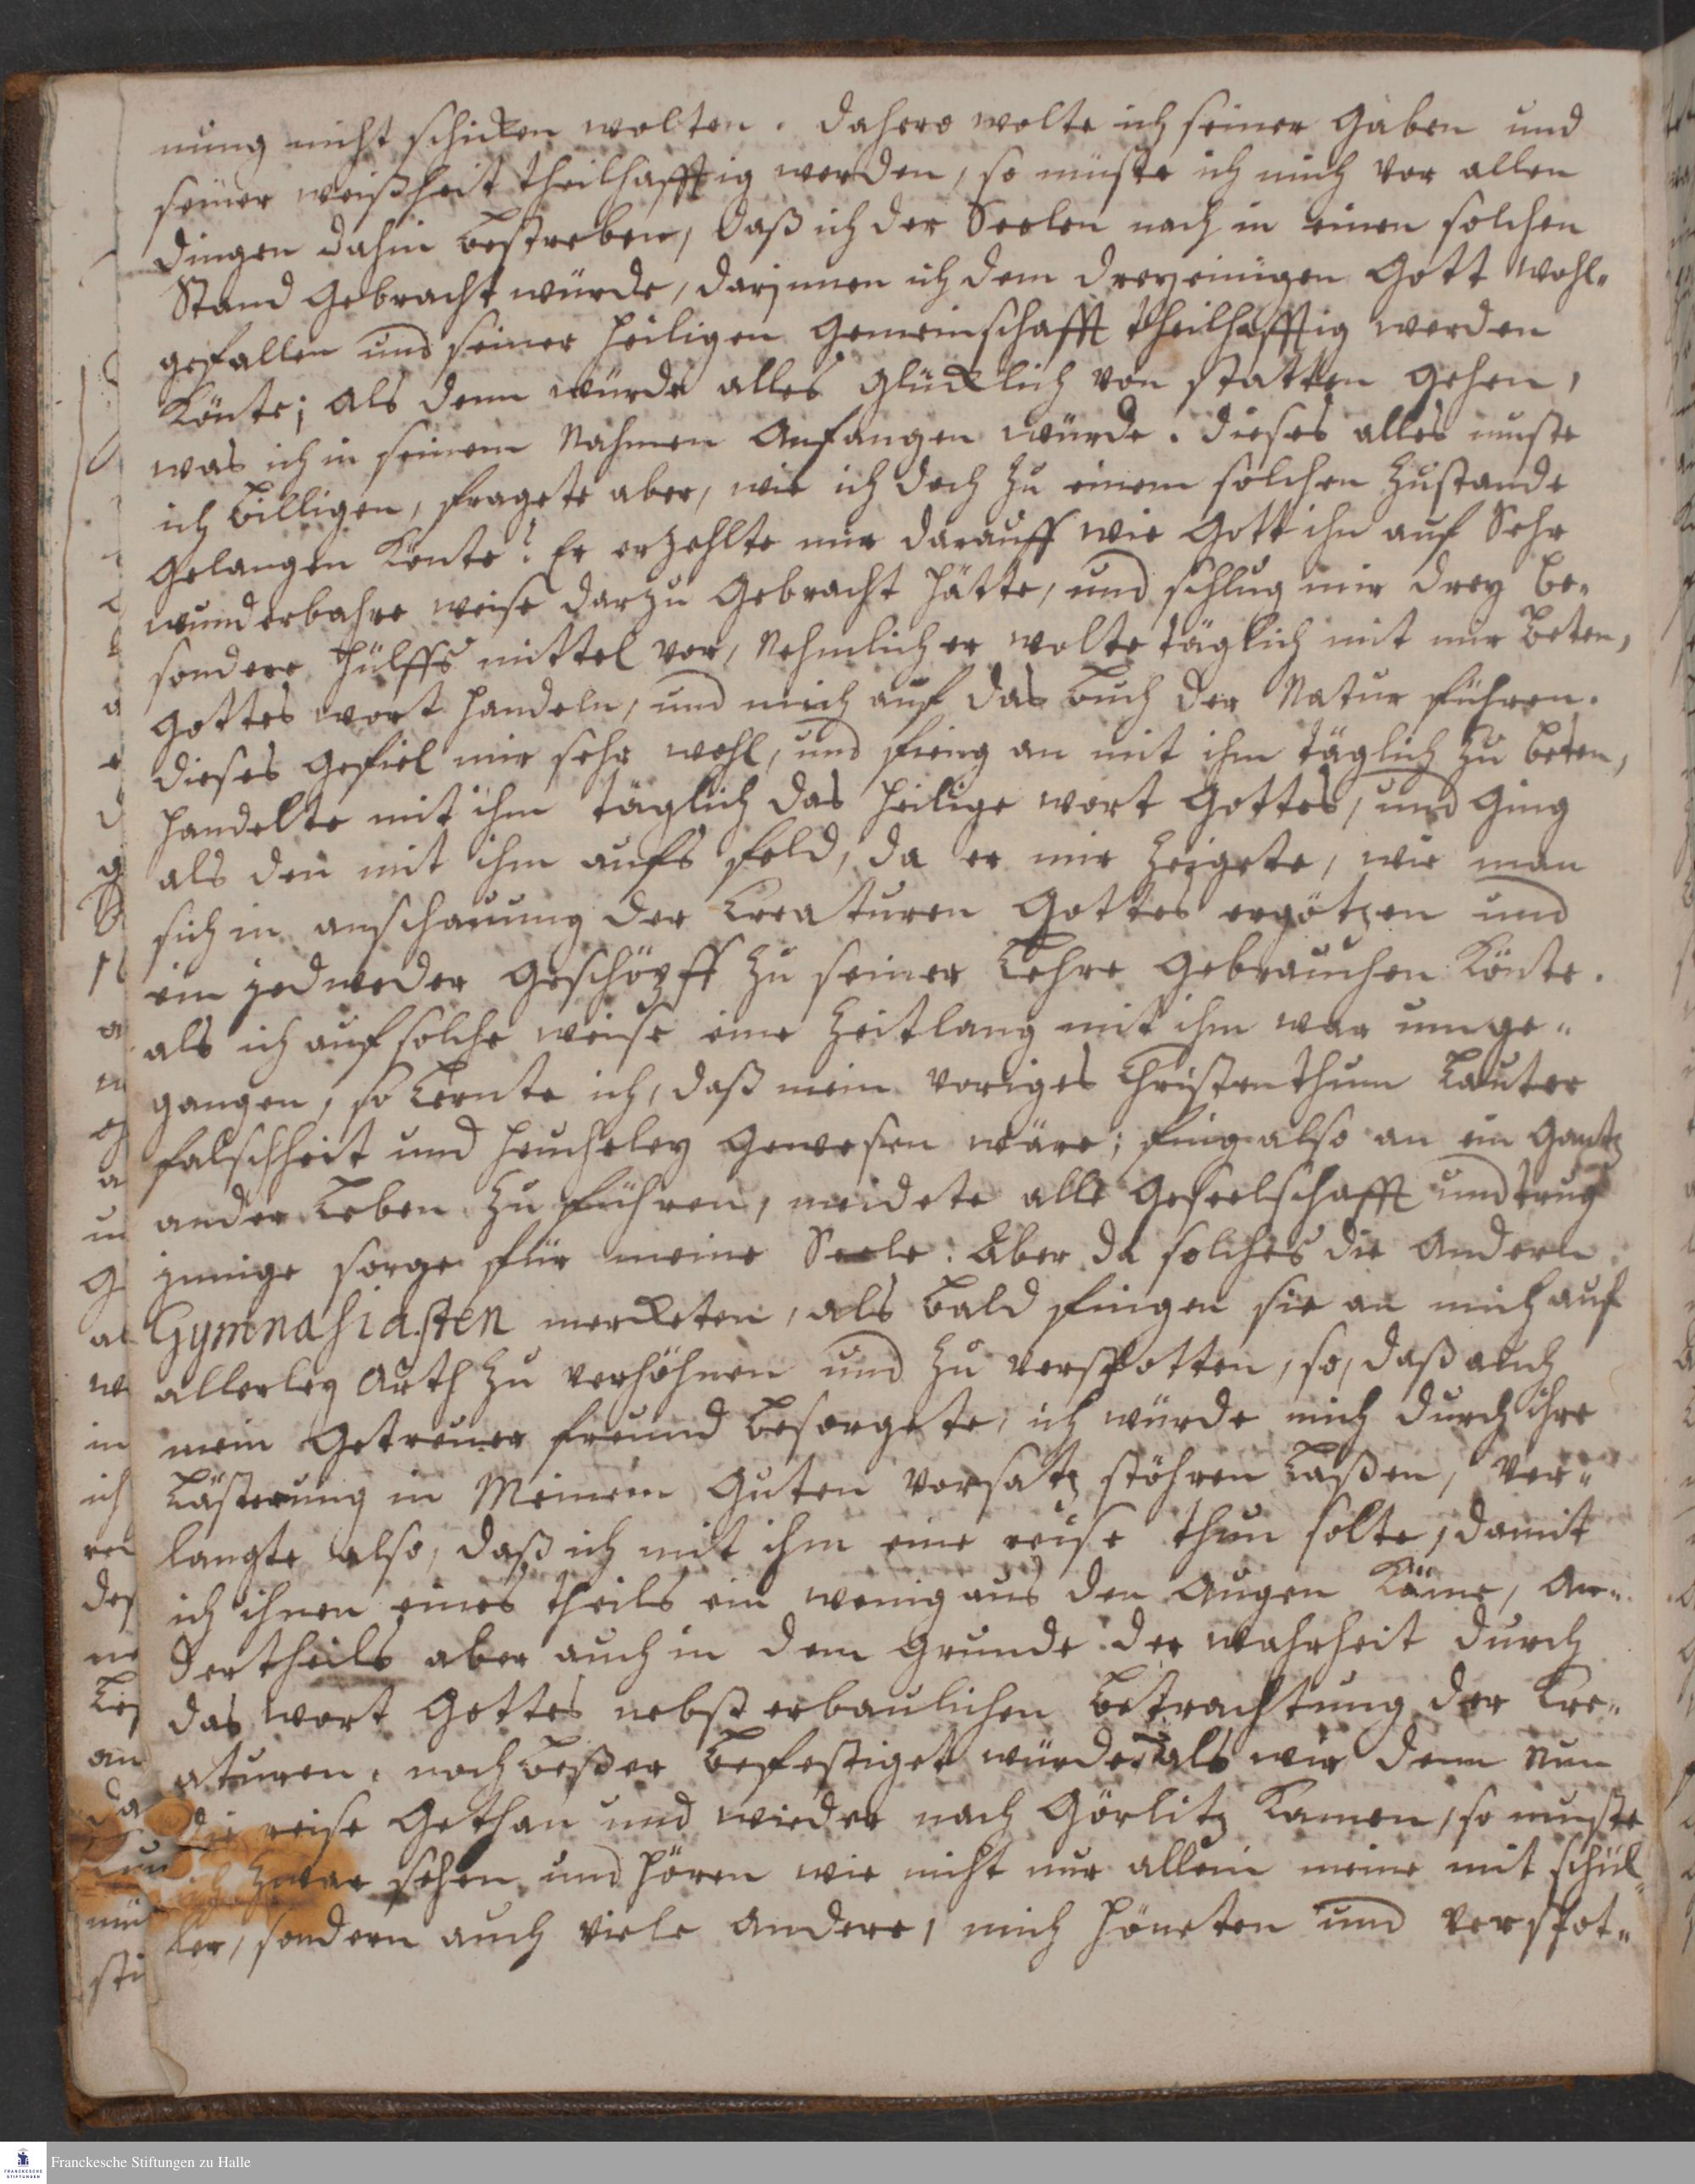 nung nicht schicken wolten. Dahero wolte ich seiner Gaben und
seiner weißheit theilhafftig werden, so müste ich mich vor allen
dingen dahin bestreben, daß ich der Seelen nach in einen solchen
Stand gebracht würde, darjnnen ich dem dreyeinigen Gott wohl„
gefallen und seiner heiligen Gemeinschafft theilhafftig werden
Könte; als denn würde alles glücklich von statten gehen,
was ich in seinem Nahmen Anfangen würde. dieses alles muste
ich billigen, fragete aber, wie ich doch zu einem solchen Zustande
gelangen Könte? Er erzehlte mir darauff wie Gott ihn auf Sehr
wunderbahre weise darzu Gebracht hätte, und schlug mir drey be„
sondere hülffs mittel vor, Nehmlich er wolte täglich mit mir beten,
Gottes wort handeln, und mich auf das buch der Natur führen.
dieses Gefiel mir sehr wohl, und fieng an mit ihm täglich zu beten,
handelte mit ihm täglich das heilige wort Gottes, und Ging
als den mit ihm aufs feld, da er mir zeigete, wie man
sich in anschauung der Creaturen Gottes ergötzen und
ein jedweder Geschöpff zu seiner Lehre Gebrauchen Könte.
als ich auf solche weise eine Zeitlang mit ihm war umge„
gangen, so Lernte ich, daß mein voriges Christenthum Lauter
falschheit und heucheley Gewesen wäre; fing also an ein Gantz
ander Leben zu führen, meidete alle Geseelschafft und trug
jnnige sorge für meine Seele: Aber da solches die Andern
Gymnasiasten mercketen, als bald fingen sie an mich auf
allerley Arth zu verhöhnen und zu verspotten, so, daß auch
mein Getreuer freund besorgete, ich würde mich durch ihre
Lästerung in Meinem Guten vorsatz stöhren Laßen, ver„
langte also, daß ich mit ihm eine reise thun solte, damit
ich ihnen eines theils ein wenig aus den Augen Käme, An„
dertheils aber auch in dem Grunde der wahrheit durch
das wort Gottes nebst erbaulichen betrachtung der Cre„
aturen, noch beßer befestiget würde. Als wir denn Nun
die reise Gethan und wieder nach Görlitz Kamen, so muste
ich zwar sehen und hören wie nicht nur allein meine mit schül„
ler, sondern auch viele Andere, mich höneten und verspot„
Franckesche Stiftungen zu Halle